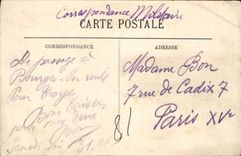 Correspondance Militaire
CARTE POSTALE
CORRESPONDANCE
ADRESSE
De passage à
Bourges, en route
pour Troyes
Bons baisers
pour vous deux
Samedi
Madame Bon
7 rue de Cadix 7
Paris XVe
81